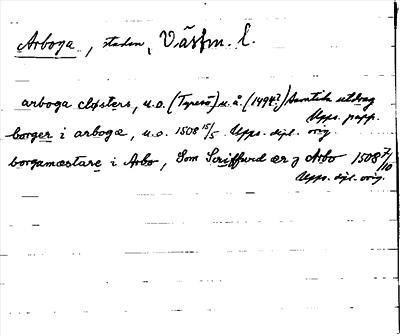 Arboga, staden, Västm. l.
arboga closters, u.o. (Tyresö) u.å. (1494?) samtida utdrag
Upps. papp.
borger i arboga, u.o. 1508 15/5 Upps. dipl. orig.
borgamæstare i Arbo, Som Scriffwid ær j Arbo 1508 7/10
Upps. dipl. orig.